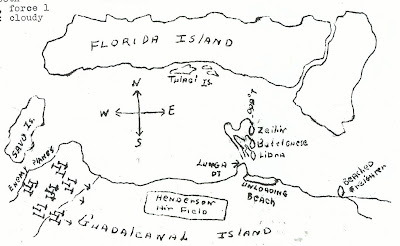 , force 1
: cloudy
FLORIDA ISLAND
TULAGI IS.
N
W E
S
090°T
Zeilin
Betelgeuse
Libra
SAVO IS.
ENEMY PLANES
LUNGA
PT
UNLOADING
BEACH
HENDERSON
Air Field
BEACHED
GUADALCANAL ISLAND